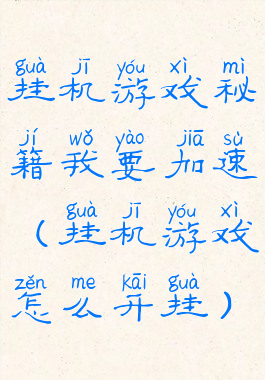 guà jī yóu xì mì
挂机游戏秘
jí wǒ yào jiā sù
籍我要加速
guà jī yóu xì
（挂机游戏
zěn me kāi guà
怎么开挂）